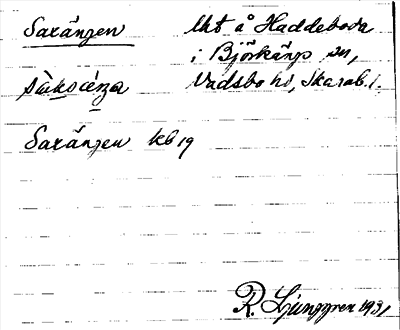 Saxängen Ukt å Haddeboda
i Björkängs sn,
Vadsbo hd, Skarab. l.
Saxängen kb 19
R. Ljunggren 1931